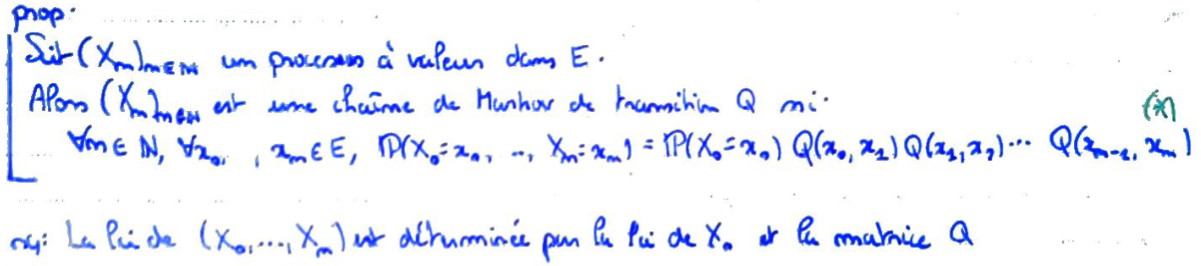 prop:
Soit (X_n)_{n∈ℕ} un processus à valeurs dans E.
Alors (X_n)_{n∈ℕ} est une chaîne de Markov de transition Q ssi: (*)
∀n∈ℕ, ∀x_0, , x_n∈E, ℙ(X_0=x_0, .., X_n=x_n) = ℙ(X_0=x_0) Q(x_0, x_1) Q(x_1, x_2)... Q(x_{n-1}, x_n)
rq: La loi de (X_0, ..., X_n) est déterminée par la loi de X_0 et la matrice Q